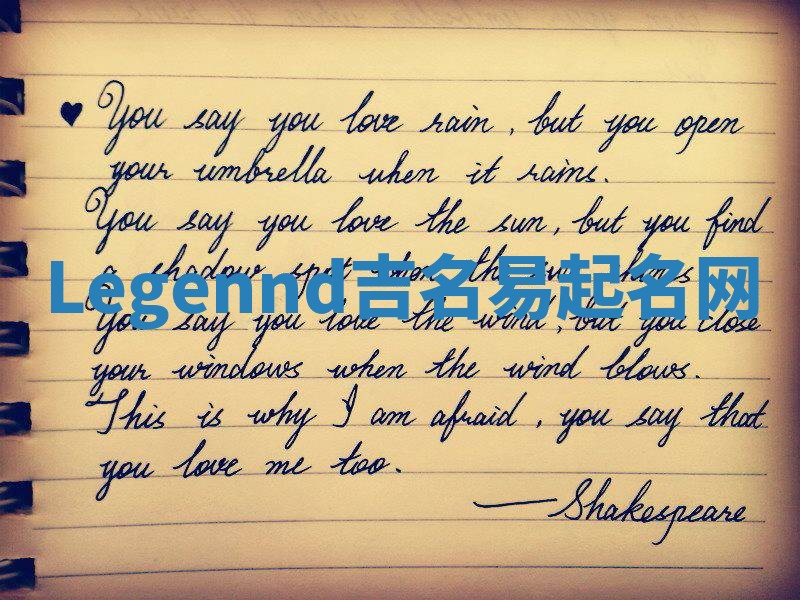 ♥ You say you love rain, but you open
your umbrella when it rains.
You say you love the sun, but you find
a shadow spot when the sun shines
Legennd吉名易起名网
You say you love the wind, but you close
your windows when the wind blows.
This is why I am afraid, you say that
you love me too.
—Shakespeare